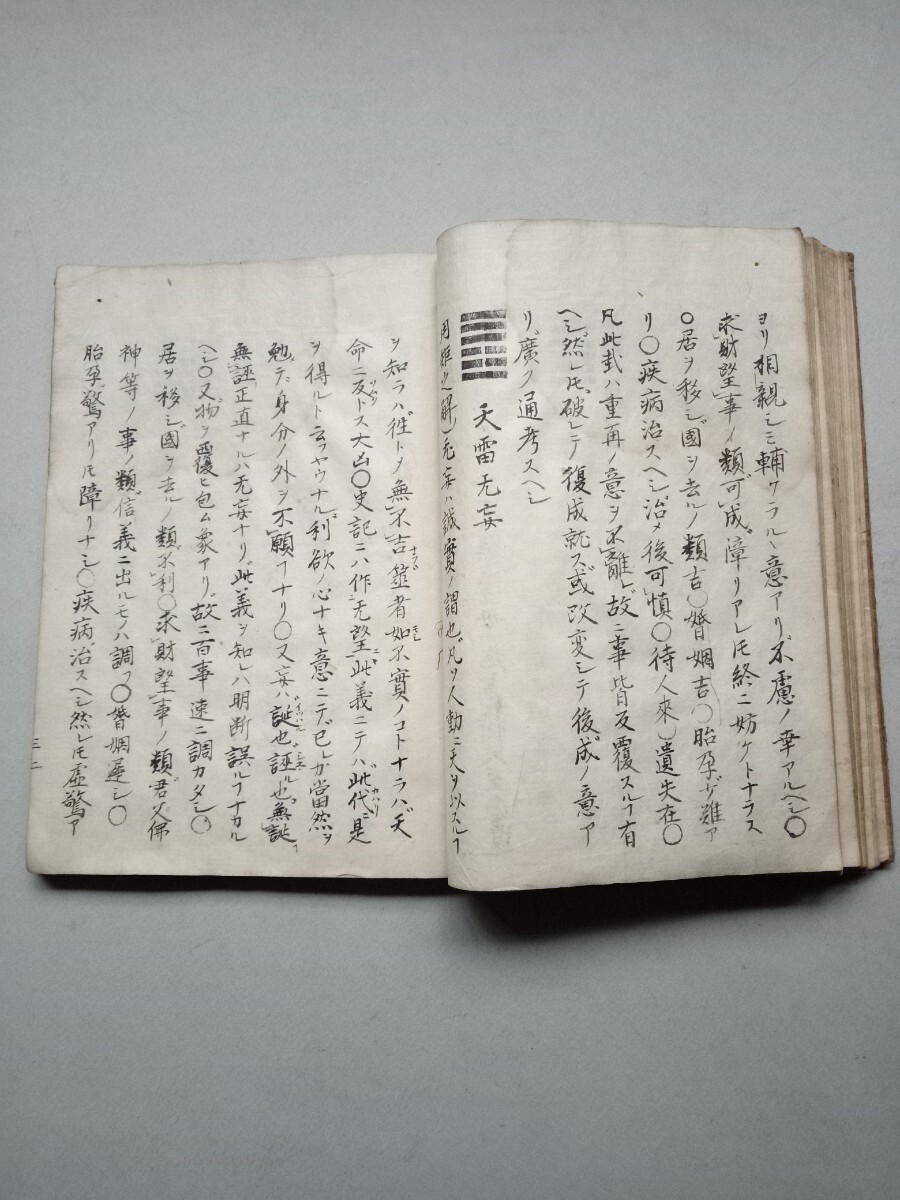 ヨリ相親シミ輔ケラルヽ意アリ不慮ノ幸アルヘシ〇
求財望事ノ類可成障リアレ𪜈終ニ妨ケトナラス
〇居ヲ移シ國ヲ去ルノ類吉〇婚姻吉〇胎孕少難ア
リ〇疾病治スヘシ治メ後可慎〇待人來〇遺失在〇
凡此卦ハ重再ノ意ヲ不離故ニ事皆反覆スルヿ有
ヘシ然レ𪜈破レテ復成就ス或改変シテ後成ノ意ア
リ廣ク通考スヘシ
天雷无妄
用維之解)无妄ハ誠實ノ謂也凡ソ人動ニ天ヲ以スルヿ
ヲ知ラハ徃トメ無不吉筮者如不實ノコトナラハ天
命ニ反トス大凶〇史記ニハ作无望此義ニテハ此代ニ是
ヲ得ルト云ヤウナル利欲ノ心ナキ意ニテ已レガ當然ヲ
勉テ身分ノ外ヲ不願ヿナリ〇又妄ハ誕也誣也無誕
無誣正直ナルハ无妄ナリ此義ヲ知レハ明断誤ルヿナカル
ヘシ〇又物ヲ覆ヒ包ム象アリ故ニ百事速ニ調カタシ〇
居ヲ移シ國ヲ去ルノ類不利〇求財望事ノ類君父佛
神等ノ事ノ類信義ニ出ルモノハ調フ〇婚姻遅シ〇
胎孕驚アリ𪜈障リナシ〇疾病治スヘシ然レ𪜈虚驚ア
三二